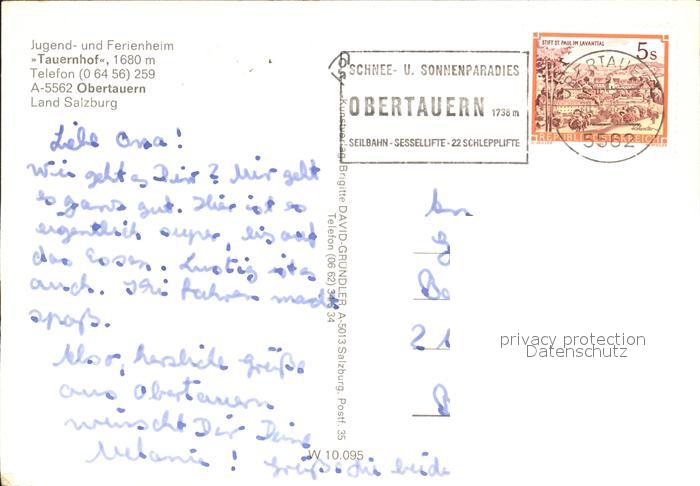 Jugend- und Ferienheim
»Tauernhof«, 1680 m
Telefon (0 64 56) 259
A-5562 Obertauern
Land Salzburg
SCHNEE- U. SONNENPARADIES
OBERTAUERN 1738 m
SEILBAHN - SESSELLIFTE - 22 SCHLEPPLIFTE
STIFT ST. PAUL IM LAVANTTAL
5 S
REPUBLIK ÖSTERREICH
OBERTAUERN
5562
Liebe Oma!
Wie geht es Dir? Mir geht
es ganz gut. Hier ist es
eigentlich super, bis auf
das Essen. Lustig ist es
auch. Ski fahren macht
spaß.
Also, herzliche grüße
aus Obertauern
wünscht Dir Deine
Melanie! Grüße die beide
Kunstverlag Brigitte DAVID-GRÜNDLER, A-5013 Salzburg, Postf. 35
Telefon (06 62) 34 34
W 10.095
An
privacy protection
Datenschutz